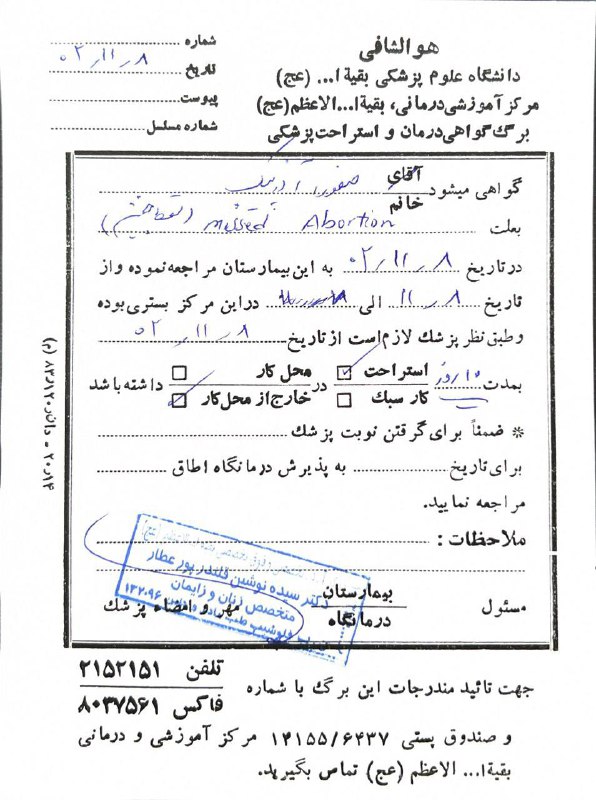 هوالشافی
دانشگاه علوم پزشکی بقیة ا... (عج)
مرکز آموزشی درمانی، بقیة ا... الاعظم (عج)
برگ گواهی درمان و استراحت پزشکی
شماره
تاریخ ۰۲،۱۱،۸
پیوست
شماره مسلسل
گواهی میشود آقای خانم صفورا
بعلت Missed Abortion
در تاریخ ۰۲،۱۱،۸ به این بیمارستان مراجعه نموده و از
تاریخ ۱۱،۸ الی در این مرکز بستری بوده
وطبق نظر پزشك لازم است از تاریخ ۰۲،۱۱،۸
بمدت ۱۰ روز استراحت کار سبك در محل کار خارج از محل کار داشته باشد
* ضمناً برای گرفتن نوبت پزشك
برای تاریخ به پذیرش درمانگاه اطاق
مراجعه نمایید.
ملاحظات :
دکتر سیده نوشین قلندر پور عطار
متخصص زنان و زایمان
۱۳۲۰۹۶
مسئول بیمارستان درمانگاه مهر و امضاء پزشك
جهت تائید مندرجات این برگ با شماره تلفن ۲۱۵۲۱۵۱ فاکس ۸۰۳۷۵۶۱
و صندوق پستی ۱۴۱۵۵/۶۴۳۷ مرکز آموزشی و درمانی
بقیة ا... الاعظم (عج) تماس بگیرید.